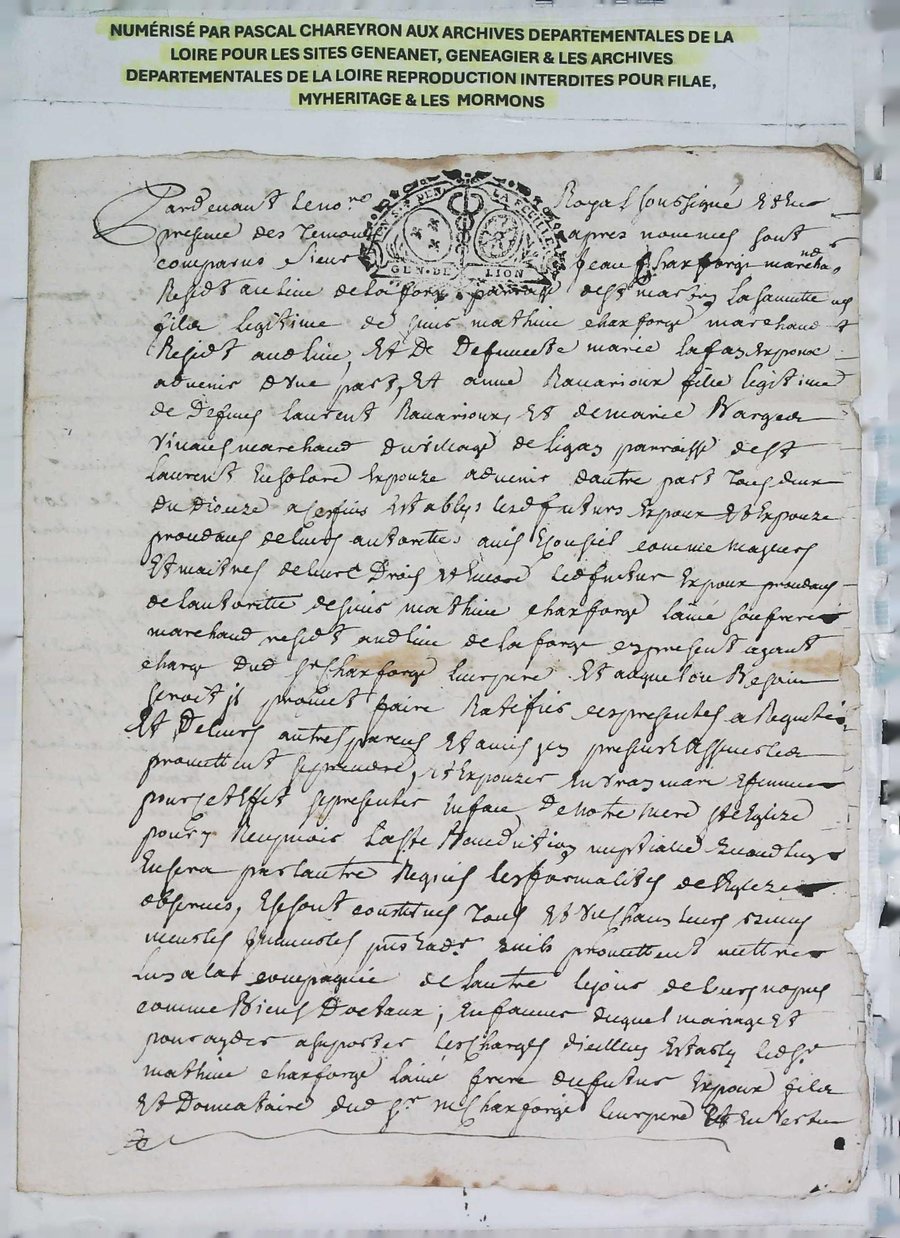 NUMÉRISÉ PAR PASCAL CHAREYRON AUX ARCHIVES DEPARTEMENTALES DE LA
LOIRE POUR LES SITES GENEANET, GENEAGIER & LES ARCHIVES
DEPARTEMENTALES DE LA LOIRE REPRODUCTION INTERDITES POUR FILAE,
MYHERITAGE & LES MORMONS
Pardevant le no.re Royal soussigné et en
presence des temoins apres nommes sont
comparus sieur Jean Charforge marchand
GEN. DE LION
Resid.t au lieu de la forge parroisse de s.t martin la sauvette
fils legitime de sieur mathieu charforge marchand
Resid.t aud lieu, Et De Deffuncte marie lafay Expoux
advenir d'une part, Et anne Ravarioux fille legitime
de Deffunct laurent Ravarioux, Et de marie
vivant marchand du village de ligas parroisse de s.t
laurent Expouze advenir d'autre part tous deux
du dioceze lesd futurs Expoux Et Expouze
procedans de leurs authorites avis Conseil comme majeurs
Et maitres de leurs Droits Et Encore led futur Expoux procedant
de l'autorité de sieur mathieu charforge l'aine son frere
marchand resid.t aud lieu de la forge cy present ayant
charge dud s.r Charforge leur pere Et auquel ou Besoin
seroit il promet faire Ratifier ces presentes a Requetion
Et De leurs autres parens Et amis
promettent se prendre, Et Expouzer En vray mary Et femme
pour cet Effet se presenter En face De notre mere s.te Eglize
pour y Recepvoir la s.te Benediction nuptialle quand l'un
En sera par l'autre Requis les formalites de l'Eglize
observees, Et se sont constitues tous Et un chacun leurs biens
meubles Immeubles quils promettent mettre
un a la compagnie de l'autre le jour de leurs nopces
comme Biens Dotaux; En faveur duquel mariage Et
pour ayder a suporter les Charges d'icelluy Estably led s.r
mathieu charforge l'aine frere du futur Expoux fils
Et Donnataire dud s.r m Charforge leur pere Et En vertu